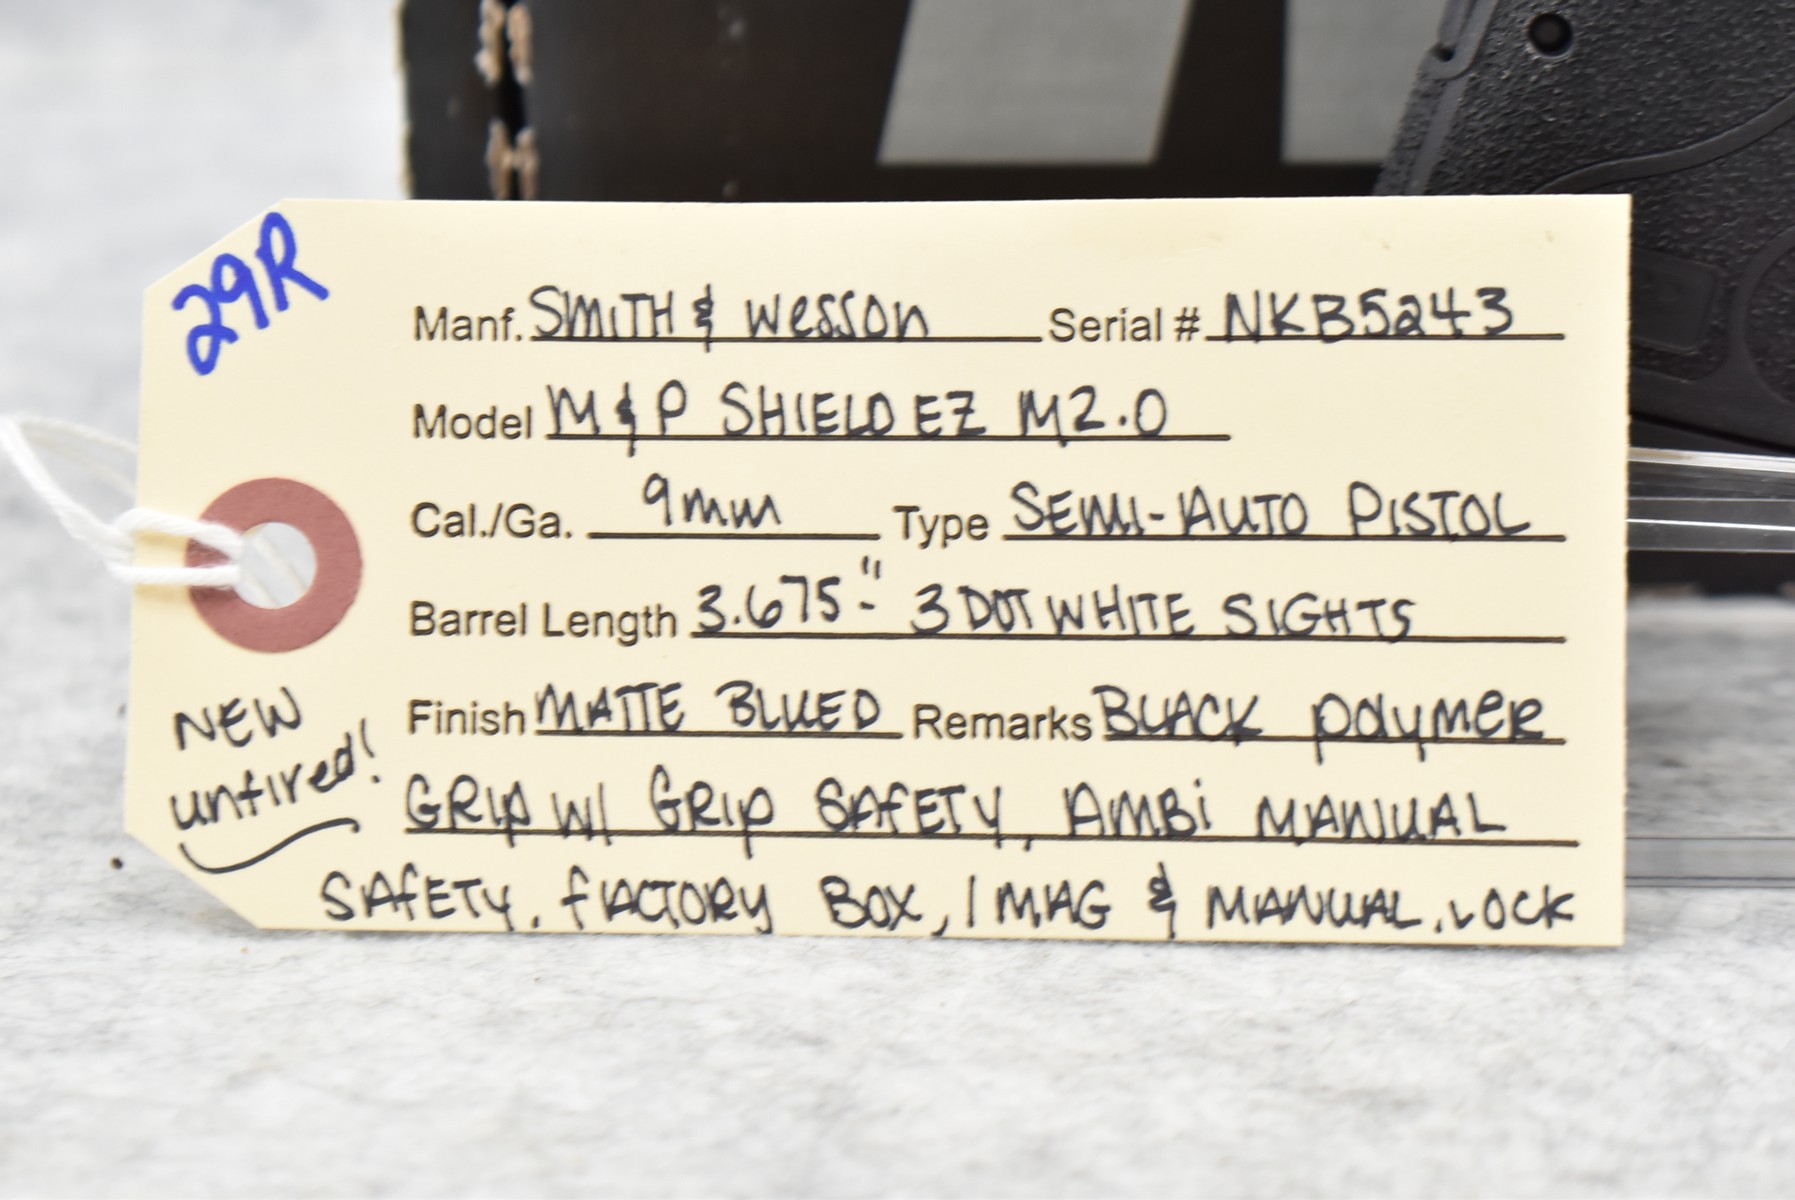 29R
Manf. SMITH & WESSON Serial # NKB5243
Model M&P SHIELD EZ M2.0
Cal./Ga. 9mm Type SEMI-AUTO PISTOL
Barrel Length 3.675"- 3 DOT WHITE SIGHTS
Finish MATTE BLUED Remarks BLACK polymer
GRIP W/ GRIP SAFETY, AMBI MANUAL
SAFETY, FACTORY BOX, 1 MAG & MANUAL, LOCK
NEW
unfired!